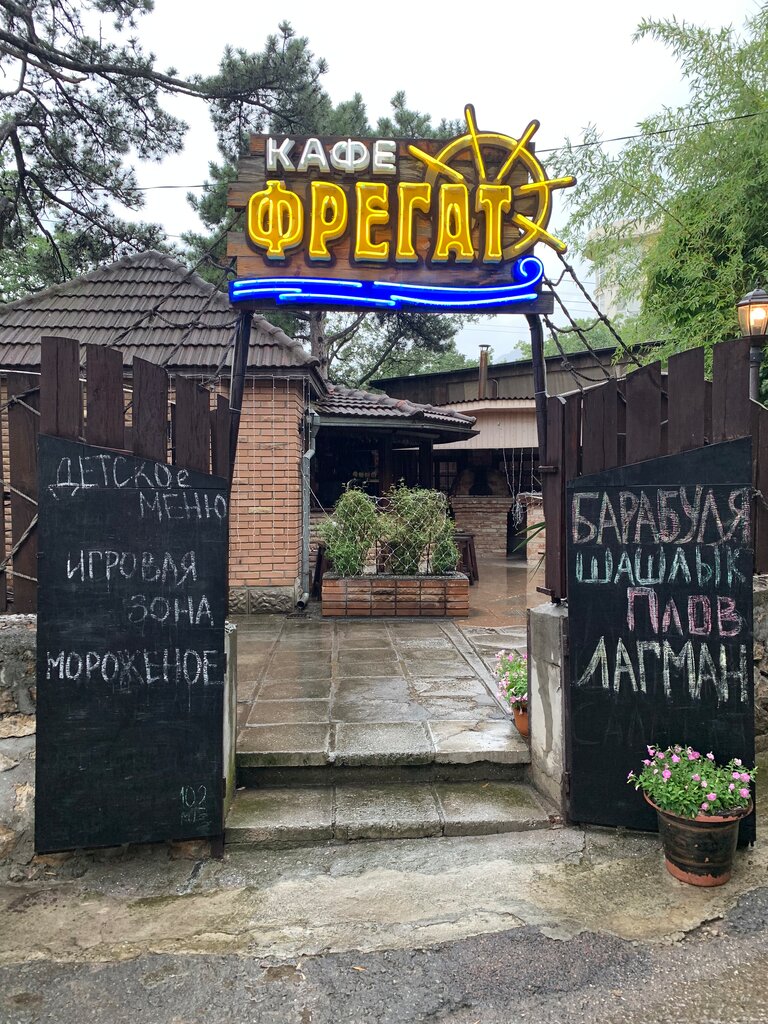 КАФЕ
ФРЕГАТ
ДЕТСКОЕ
МЕНЮ
ИГРОВАЯ
ЗОНА
МОРОЖЕНОЕ
БАРАБУЛЯ
ШАШЛЫК
ПЛОВ
ЛАГМАН